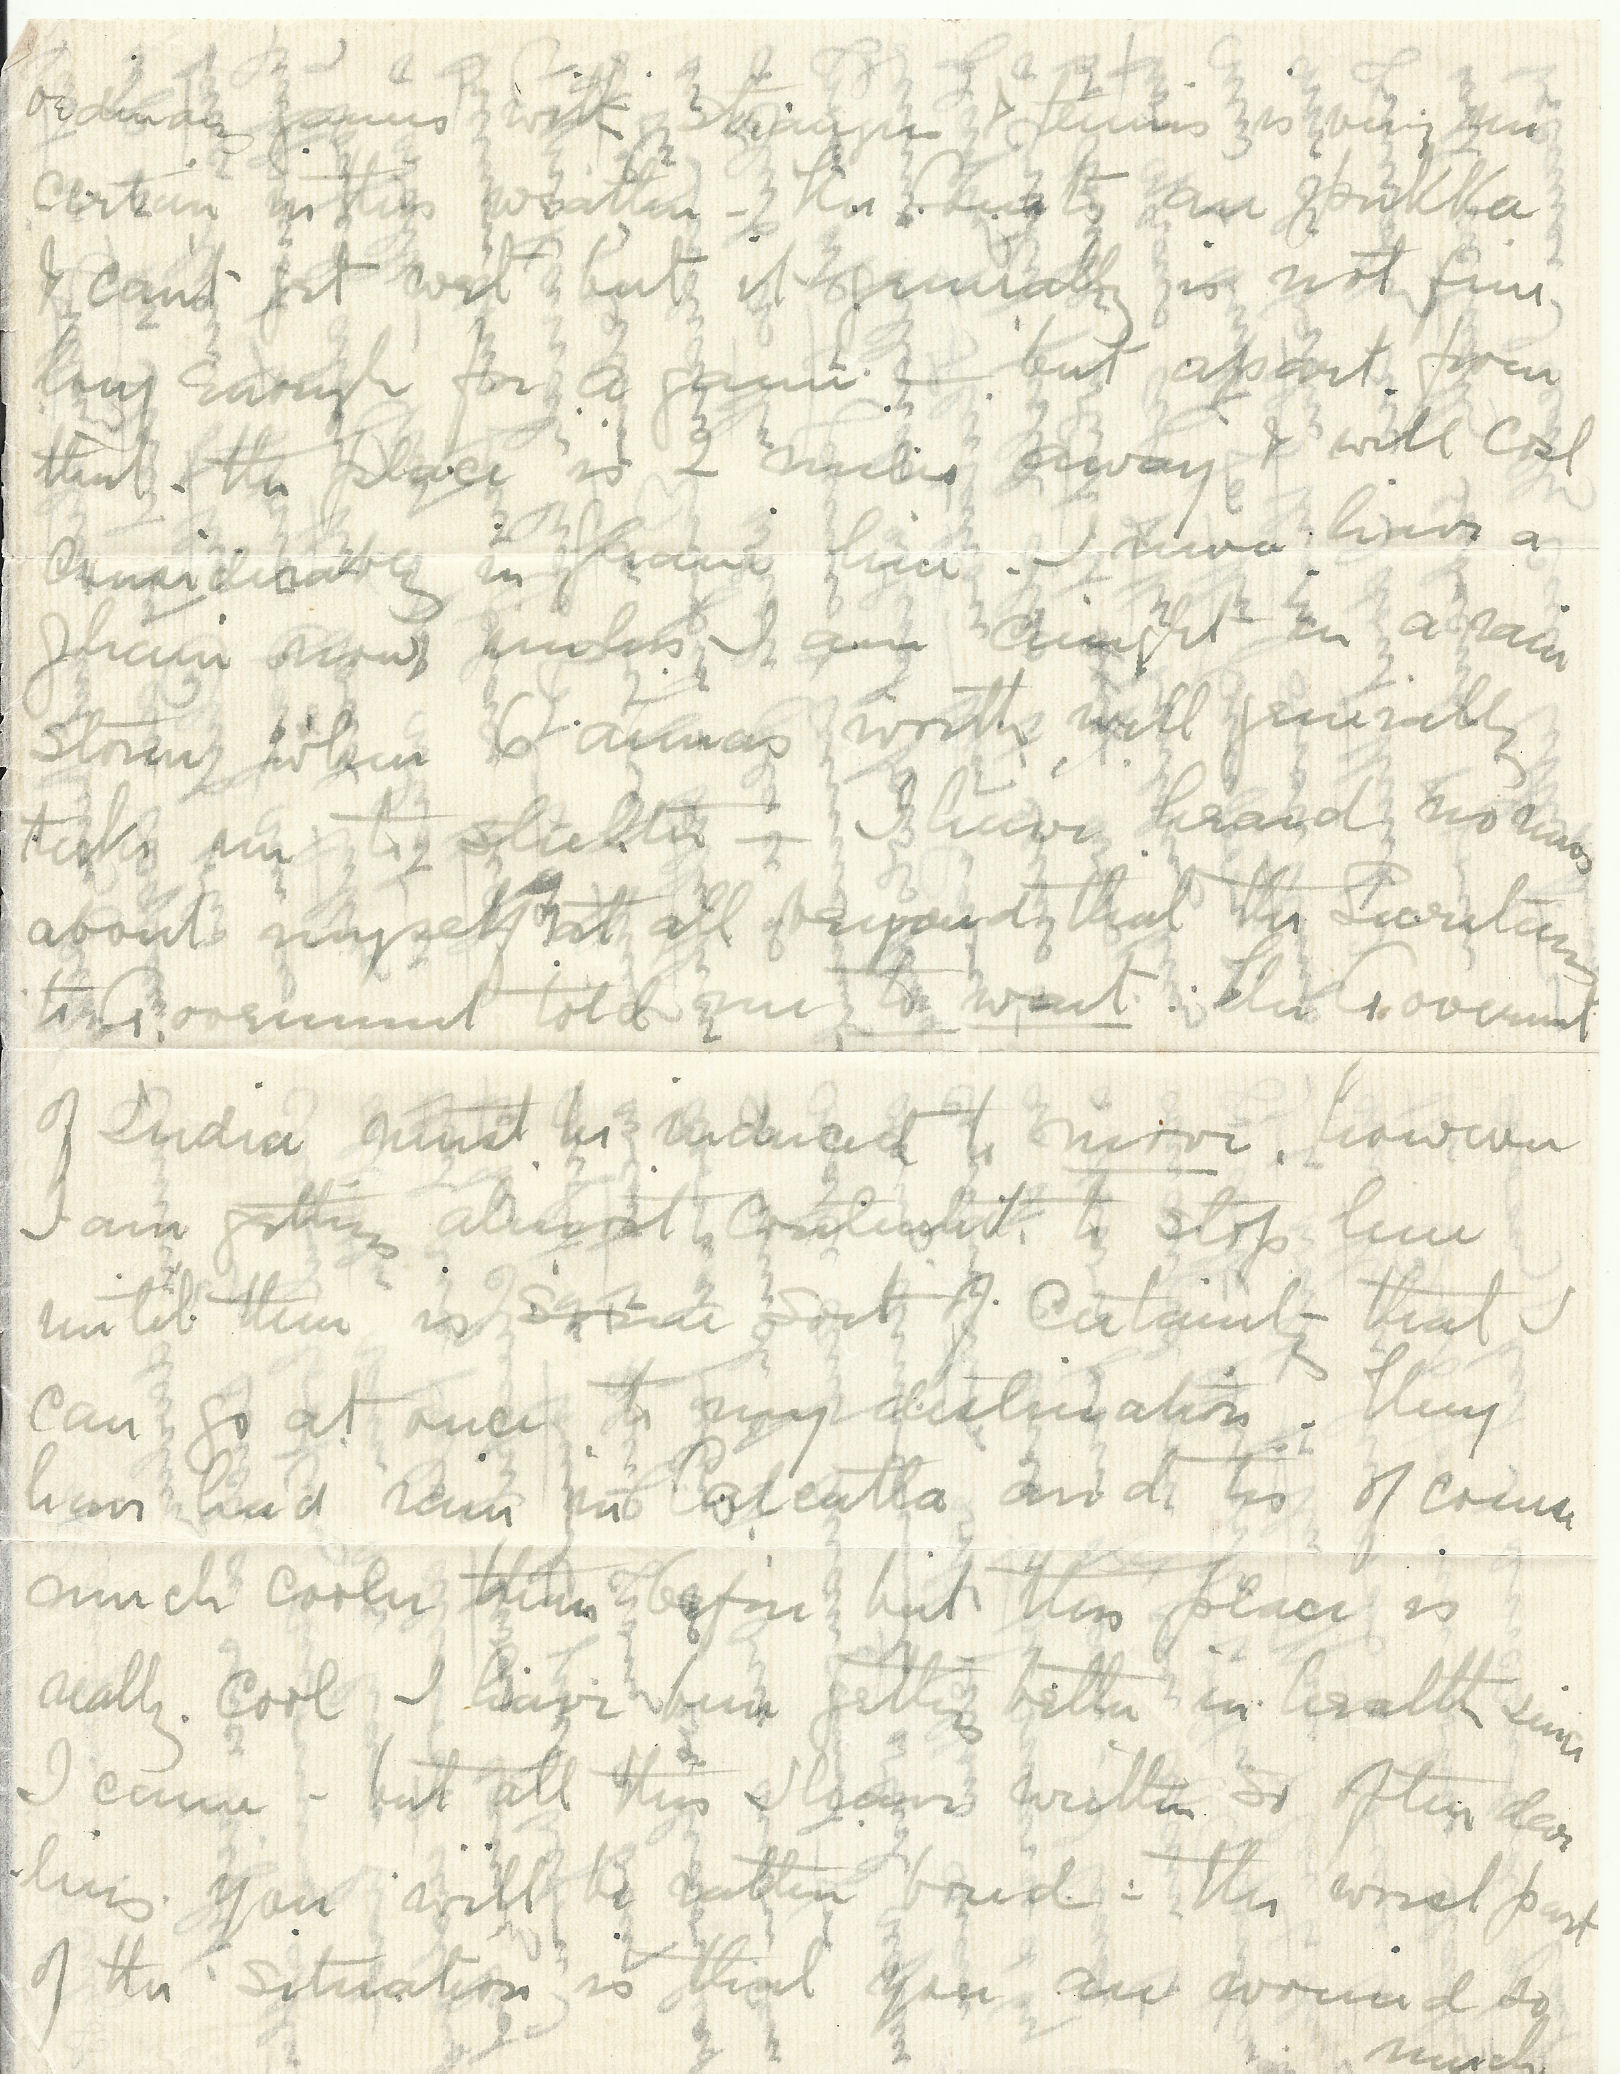 ordinary games with strangers & tennis is very un
certain in this weather - The Courts are pukka
& can't get wet but it generally is not fine
long enough for a game - but apart from
that - the place is 2 miles away & will cost
considerably in hire. I never have a
now, unless I am caught in a rain
storm when 6 annas worth will generally
take me to shelter - I have heard no news
about myself at all beyond that the Secretary
to Government told me to wait. The Government
of India must be induced to move. however
I am getting almost content to stop here
until there is some sort of certainty that I
can go at once to my destination. They
have had rain in Calcutta and tis of course
much cooler than before but this place is
really cool I have been getting better in health since
I came - but all this I have written so often dear
-ling you will be rather bored - the worst part
of the situation is that you are worried so
much